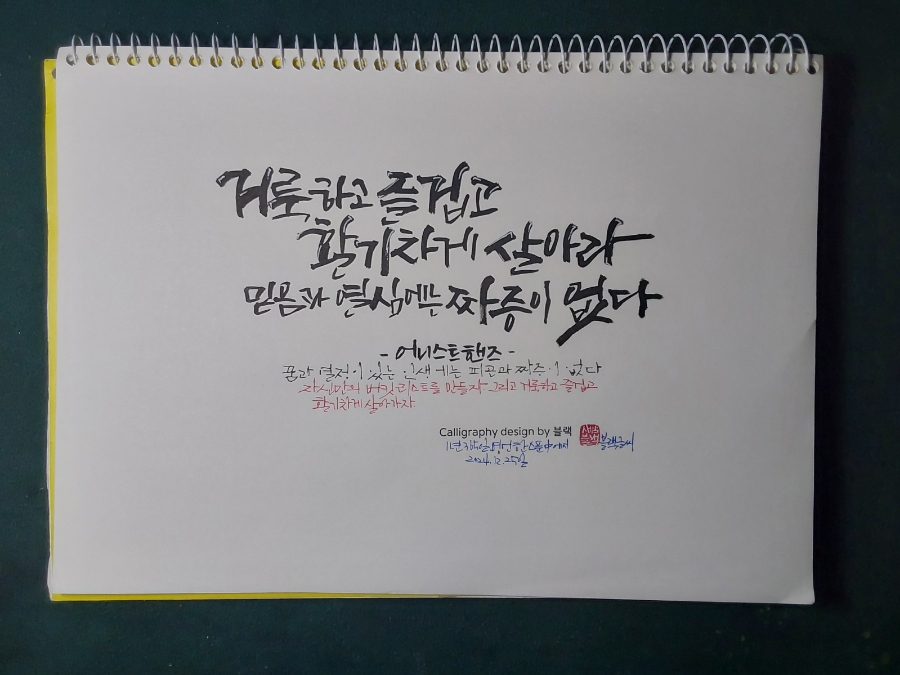 거룩하고 즐겁고
활기차게 살아라
믿음과 열심에는 짜증이 없다
- 어니스트핸즈 -
꿈과 열정이 있는 인생에는 피곤과 짜증이 없다
자신만의 버킷리스트를 만들자 그리고 거룩하고 즐겁고
활기차게 살아가자
Calligraphy design by 블랙
1년365일명언한스푼中에서 블랙글씨
2024.12.25일